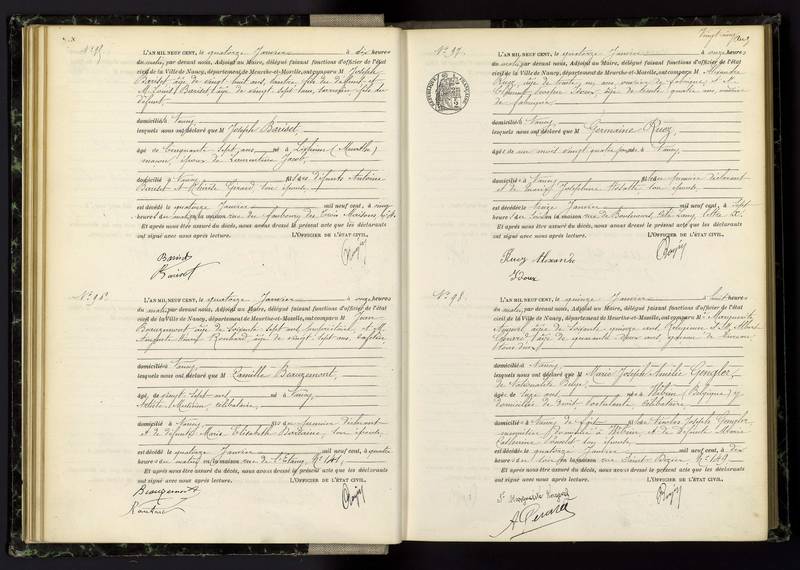 N° 95
L'AN MIL NEUF CENT, le quatorze Janvier à dix heures
du matin par devant nous, Adjoint au Maire, délégué faisant fonctions d'officier de l'état
civil de la Ville de Nancy, département de Meurthe-et-Moselle, ont comparu M Joseph
Bariset âgé de vingt huit ans, fils du défunt et
M. Louis Bariset, âgé de vingt sept ans, fils du
défunt
domiciliés à Nancy
lesquels nous ont déclaré que M Joseph Bariset,
âgé de Cinquante sept ans, né à (Meurthe)
maçon, époux de Laurentine Jacob,
domicilié à Nancy fils des défunts Antoine
Bariset et Girard, son épouse
est décédé le quatorze Janvier mil neuf cent, à cinq
heures du matin en la maison rue du faubourg des Trois Maisons
Et après nous être assuré du décès, nous avons dressé le présent acte que les déclarants
ont signé avec nous après lecture. L'OFFICIER DE L'ÉTAT CIVIL,
Bariset
Bariset
N° 96
L'AN MIL NEUF CENT, le quatorze Janvier à onze heures
du matin, par devant nous, Adjoint au Maire, délégué faisant fonctions d'officier de l'état
civil de la Ville de Nancy, département de Meurthe-et-Moselle, ont comparu M Jean
Beauzemont, âgé de soixante sept ans, et M.
Auguste âgé de vingt sept ans,
domiciliés à Nancy,
lesquels nous ont déclaré que M Camille Beauzemont,
âgé de vingt sept ans né à Nancy,
Artiste Musicien, célibataire,
domicilié à Nancy fils du premier déclarant
et de défunte Marie Elisabeth son épouse,
est décédé le quatorze Janvier mil neuf cent, à quatre
heures du matin en la maison rue de l'Etang, N° 141,
Et après nous être assuré du décès, nous avons dressé le présent acte que les déclarants
ont signé avec nous après lecture. L'OFFICIER DE L'ÉTAT CIVIL,
Beauzemont
Vingt cinq
N° 97.
RÉPUBLIQUE FRANÇAISE
L'AN MIL NEUF CENT, le quatorze Janvier à onze heures
du matin par devant nous, Adjoint au Maire, délégué faisant fonctions d'officier de l'état
civil de la Ville de Nancy, département de Meurthe-et-Moselle, ont comparu M Alexandre
Ruez, âgé de trente un ans, ouvrier de fabrique, et M.
Idoux, âgé de trente quatre ans, ouvrier
de fabrique
domiciliés à Nancy,
lesquels nous ont déclaré que M Germaine Ruez,
âgée de un mois vingt quatre jours née à Nancy,
domiciliée à Nancy fille du premier déclarant
et de Marie Joséphine son épouse,
est décédée le treize Janvier mil neuf cent, à sept
heures du soir en la maison rue de
Et après nous être assuré du décès, nous avons dressé le présent acte que les déclarants
ont signé avec nous après lecture. L'OFFICIER DE L'ÉTAT CIVIL,
Ruez Alexandre
Idoux
N° 98.
L'AN MIL NEUF CENT, le quinze Janvier à huit heures
du matin, par devant nous, Adjoint au Maire, délégué faisant fonctions d'officier de l'état
civil de la Ville de Nancy, département de Meurthe-et-Moselle, ont comparu M Marguerite
âgée de soixante quinze ans, Religieuse et M. Albert
âgé de quarante deux ans,
domiciliés à Nancy
lesquels nous ont déclaré que M Marie Joseph Amélie Gengler,
de Nationalité Belge,
âgée de ans née à (Belgique)
domiciliée de droit, Postulante, célibataire
domiciliée à Nancy de fait fille de Nicolas Joseph Gengler,
domicilié à et de défunte Marie
Catherine son épouse,
est décédée le quatorze Janvier mil neuf cent, à dix
heures du soir en la maison rue Saint Dizier, N° 149
Et après nous être assuré du décès, nous avons dressé le présent acte que les déclarants
ont signé avec nous après lecture. L'OFFICIER DE L'ÉTAT CIVIL,
Sr Marguerite